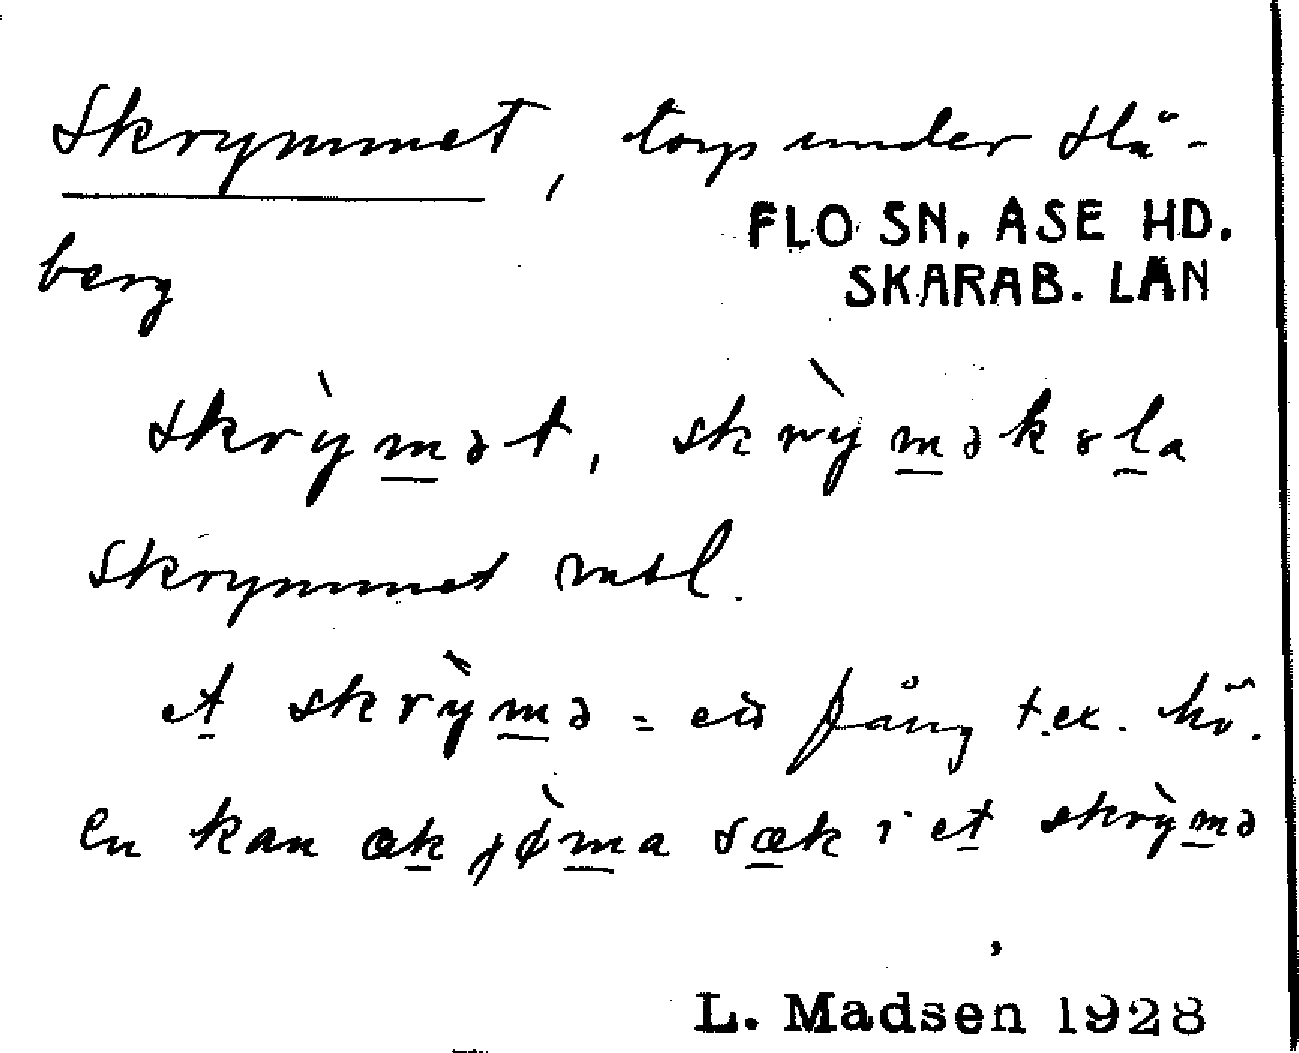 Skrymmet, torp under Slä-
FLO SN. ÅSE HD.
berg
SKARAB. LÄN
skry̍̀mət, skrỳməkɔla
Skrymmet mbl.
et skrỳmə = ett fång t.ex. hö.
En kan æk jø̀ma sæk i et skrỳmə
L. Madsen 1928